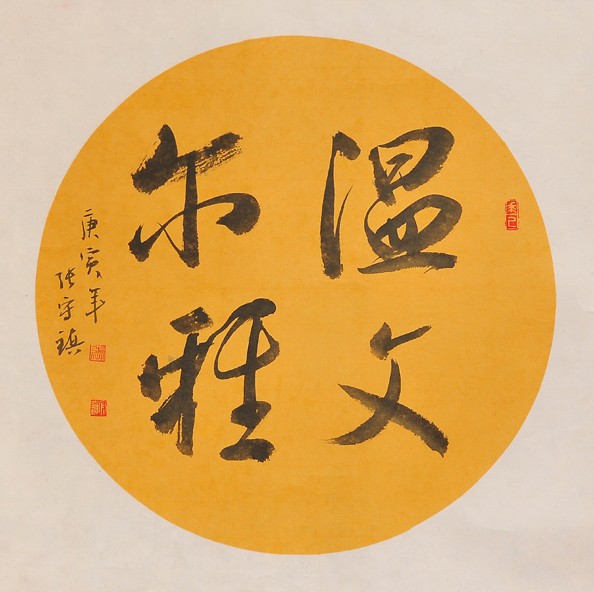 温文
尔雅
庚寅年
张守镇